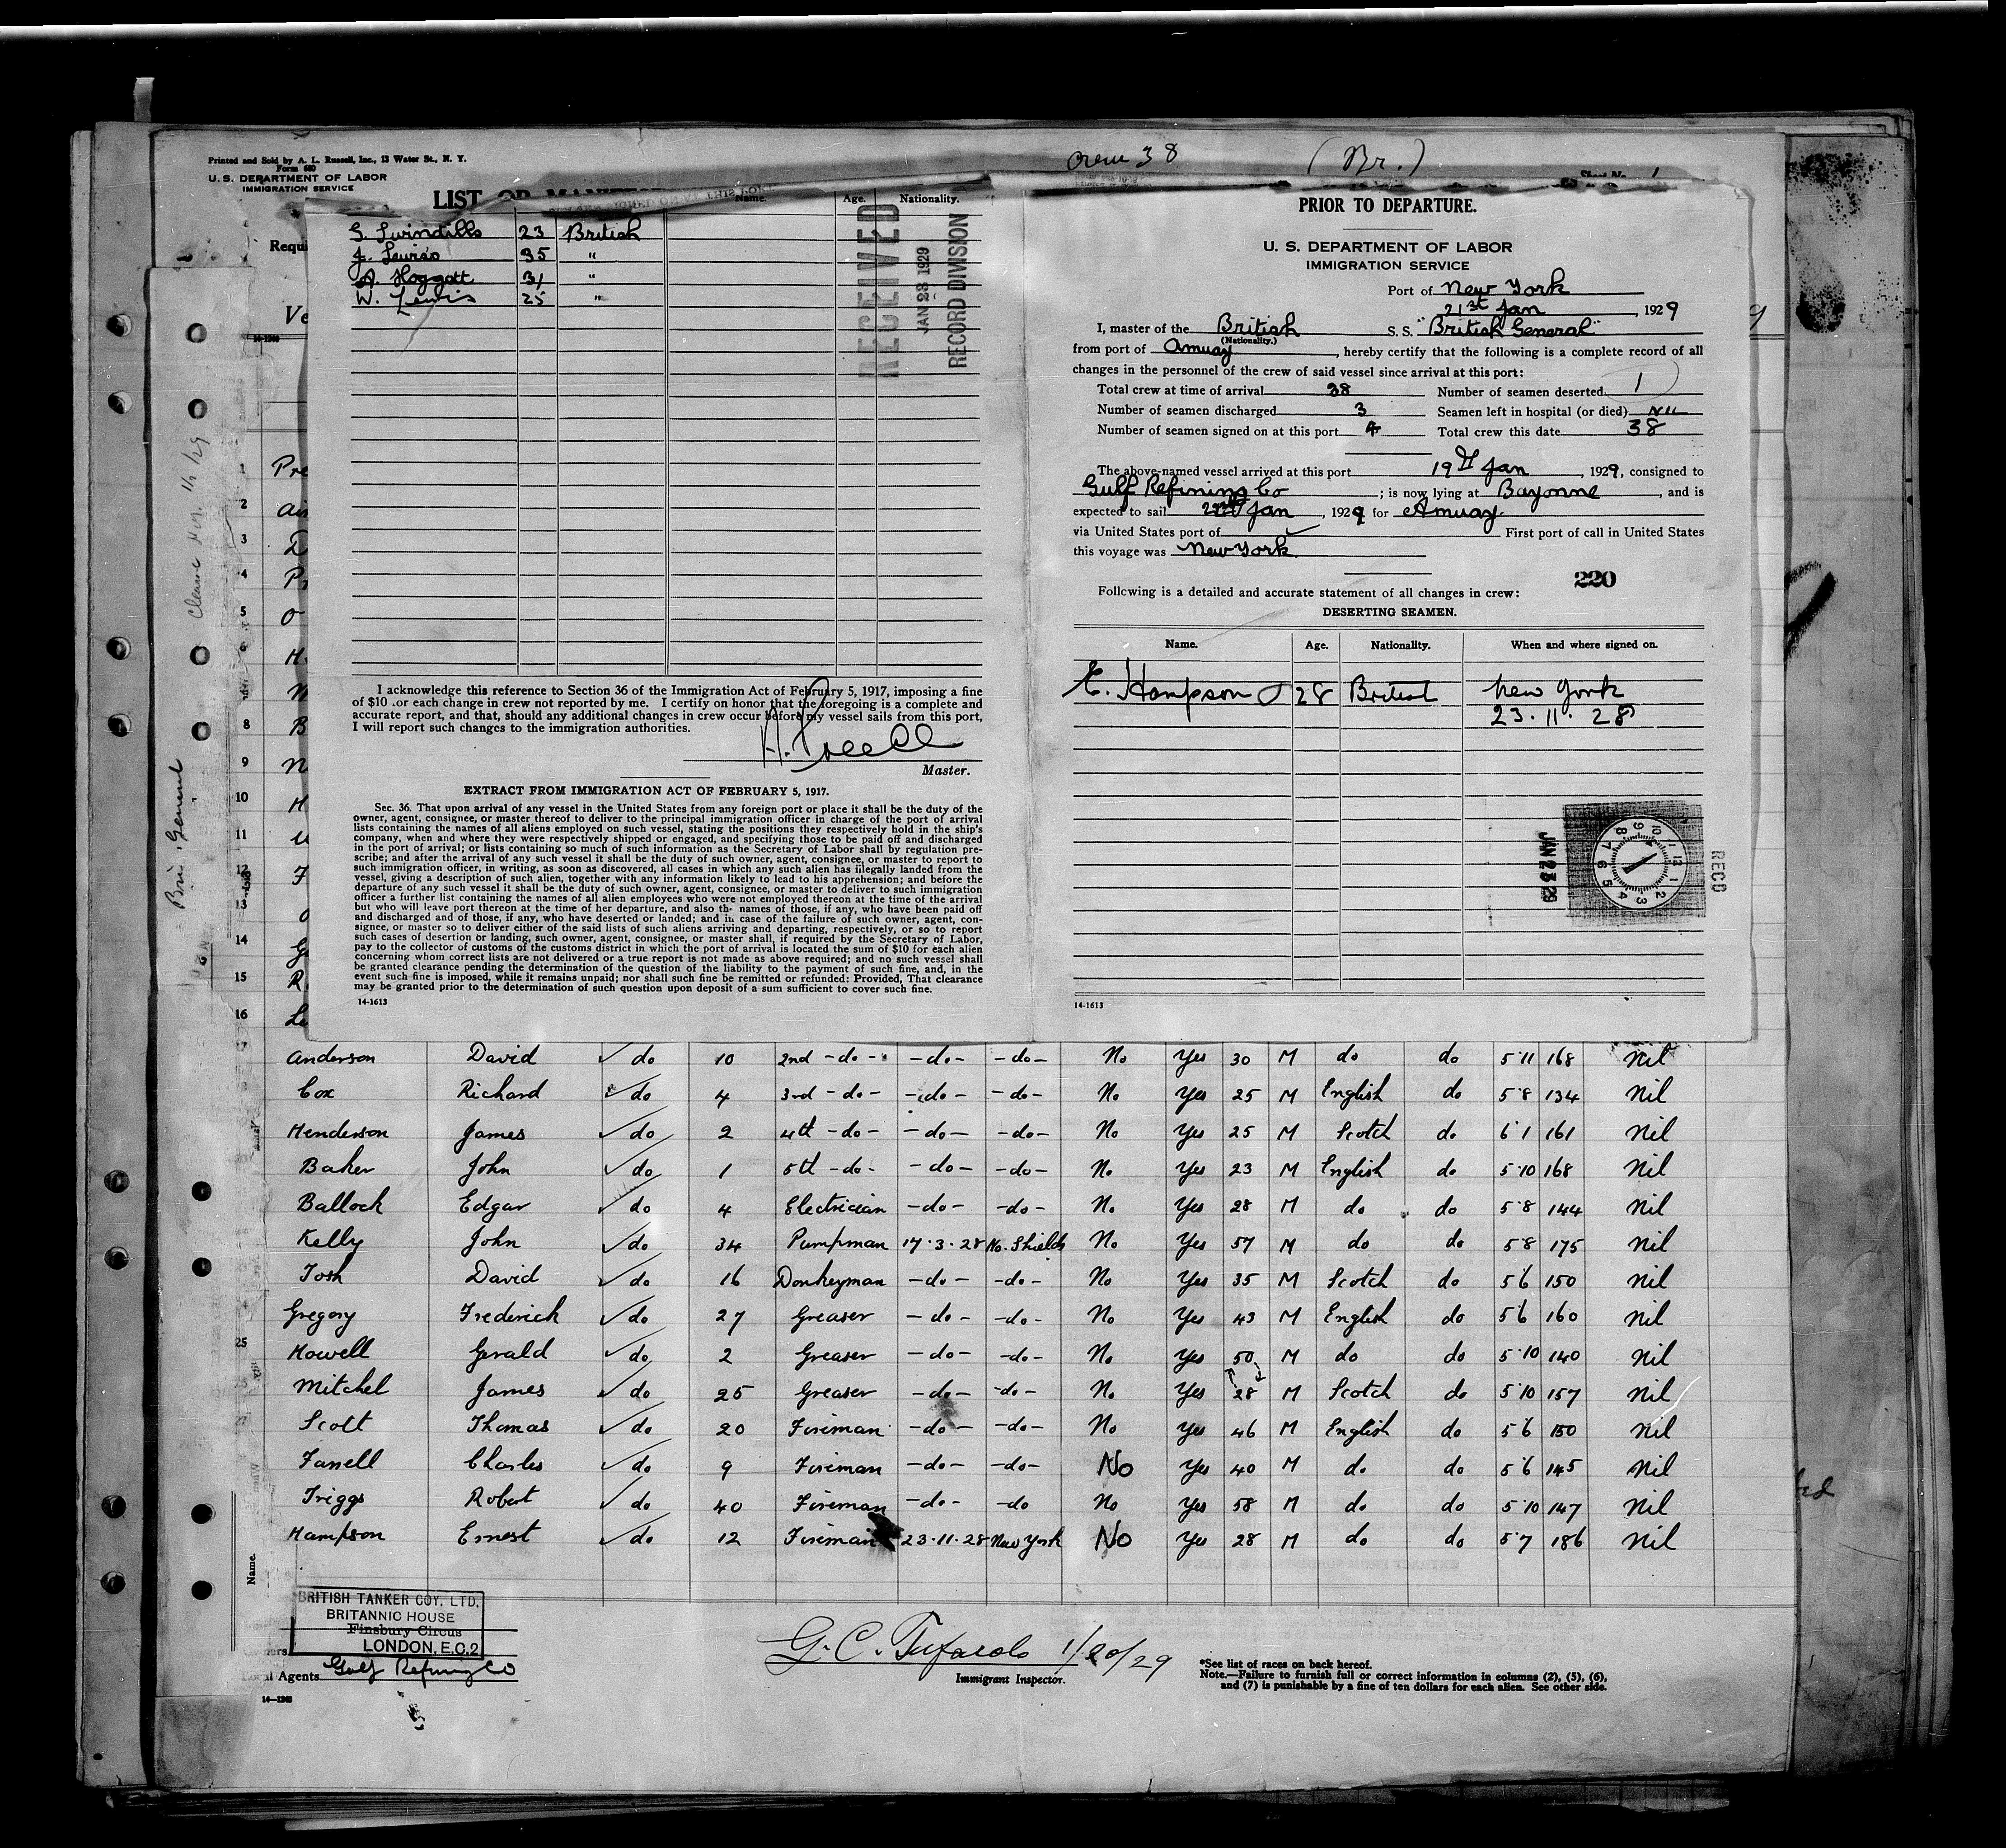 Printed and Sold by A. L. Russell, Inc., 13 Water St., N. Y.
Form 680
U. S. DEPARTMENT OF LABOR
IMMIGRATION SERVICE
LIST OR
Crew 38 (Br.)
Sheet No. 1
Requi
Ve
14-1240
Name. Age. Nationality.
G. Swindills 23 British
J. Lewis 35 "
A. Hoggatt 31 "
W. Lewis 25 "
RECEIVED
JAN 23 1929
RECORD DIVISION
I acknowledge this reference to Section 36 of the Immigration Act of February 5, 1917, imposing a fine
of $10 for each change in crew not reported by me. I certify on honor that the foregoing is a complete and
accurate report, and that, should any additional changes in crew occur before my vessel sails from this port,
I will report such changes to the immigration authorities.
Master.
EXTRACT FROM IMMIGRATION ACT OF FEBRUARY 5, 1917.
Sec. 36. That upon arrival of any vessel in the United States from any foreign port or place it shall be the duty of the
owner, agent, consignee, or master thereof to deliver to the principal immigration officer in charge of the port of arrival
lists containing the names of all aliens employed on such vessel, stating the positions they respectively hold in the ship's
company, when and where they were respectively shipped or engaged, and specifying those to be paid off and discharged
in the port of arrival; or lists containing so much of such information as the Secretary of Labor shall by regulation pre-
scribe; and after the arrival of any such vessel it shall be the duty of such owner, agent, consignee, or master to report to
such immigration officer, in writing, as soon as discovered, all cases in which any such alien has illegally landed from the
vessel, giving a description of such alien, together with any information likely to lead to his apprehension; and before the
departure of any such vessel it shall be the duty of such owner, agent, consignee, or master to deliver to such immigration
officer a further list containing the names of all alien employees who were not employed thereon at the time of the arrival
but who will leave port thereon at the time of her departure, and also the names of those, if any, who have been paid off
and discharged and of those, if any, who have deserted or landed; and in case of the failure of such owner, agent, con-
signee, or master so to deliver either of the said lists of such aliens arriving and departing, respectively, or so to report
such cases of desertion or landing, such owner, agent, consignee, or master shall, if required by the Secretary of Labor,
pay to the collector of customs of the customs district in which the port of arrival is located the sum of $10 for each alien
concerning whom correct lists are not delivered or a true report is not made as above required; and no such vessel shall
be granted clearance pending the determination of the question of the liability to the payment of such fine, and, in the
event such fine is imposed, while it remains unpaid; nor shall such fine be remitted or refunded: Provided, That clearance
may be granted prior to the determination of such question upon deposit of a sum sufficient to cover such fine.
14-1613
PRIOR TO DEPARTURE.
U. S. DEPARTMENT OF LABOR
IMMIGRATION SERVICE
Port of New York
21st Jan, 1929
I, master of the British S. S. "British General"
(Nationality.)
from port of Amuay, hereby certify that the following is a complete record of all
changes in the personnel of the crew of said vessel since arrival at this port:
Total crew at time of arrival 38 Number of seamen deserted 1
Number of seamen discharged 3 Seamen left in hospital (or died) Nil
Number of seamen signed on at this port 4 Total crew this date 38
The above-named vessel arrived at this port 19th Jan, 1929, consigned to
Gulf Refining Co; is now lying at Bayonne, and is
expected to sail 22nd Jan, 1929 for Amuay.
via United States port of First port of call in United States
this voyage was New York.
220
Following is a detailed and accurate statement of all changes in crew:
DESERTING SEAMEN.
Name. Age. Nationality. When and where signed on.
E. Hampson 28 British New York
23.11.28
JAN 23 29
RECD
14-1613
Bri. General
1
2
3
4
5
6
8
9
10
11
12
13
14
15
16
Anderson David do 10 2nd -do- -do- -do- No Yes 30 M do do 5'11 168 Nil
Cox Richard do 4 3rd -do- -do- -do- No Yes 25 M English do 5'8 134 Nil
Henderson James do 2 4th -do- -do- -do- No Yes 25 M Scotch do 6'1 161 Nil
Baker John do 1 5th -do- -do- -do- No Yes 23 M English do 5'10 168 Nil
Ballock Edgar do 4 Electrician -do- -do- No Yes 28 M do do 5'8 144 Nil
Kelly John do 34 Pumpman 17.3.28 No. Shields No Yes 57 M do do 5'8 175 Nil
Tosh David do 16 Donkeyman -do- -do- No Yes 35 M Scotch do 5'6 150 Nil
Gregory Frederick do 27 Greaser -do- -do- No Yes 43 M English do 5'6 160 Nil
25 Howell Gerald do 2 Greaser -do- -do- No Yes 50 M do do 5'10 140 Nil
Mitchel James do 25 Greaser -do- -do- No Yes 28 M Scotch do 5'10 157 Nil
Scott Thomas do 20 Fireman -do- -do- No Yes 46 M English do 5'6 150 Nil
Farrell Charles do 9 Fireman -do- -do- No Yes 40 M do do 5'6 145 Nil
Triggs Robert do 40 Fireman -do- -do No Yes 58 M do do 5'10 147 Nil
Hampson Ernest do 12 Fireman 23.11.28 New York No Yes 28 M do do 5'7 186 Nil
Name.
BRITISH TANKER COY. LTD.
BRITANNIC HOUSE
Finsbury Circus
LONDON, E.C.2
Agents Gulf Refining Co
14-1240
1/20/29
Immigrant Inspector.
*See list of races on back hereof.
Note.—Failure to furnish full or correct information in columns (2), (5), (6),
and (7) is punishable by a fine of ten dollars for each alien. See other side.